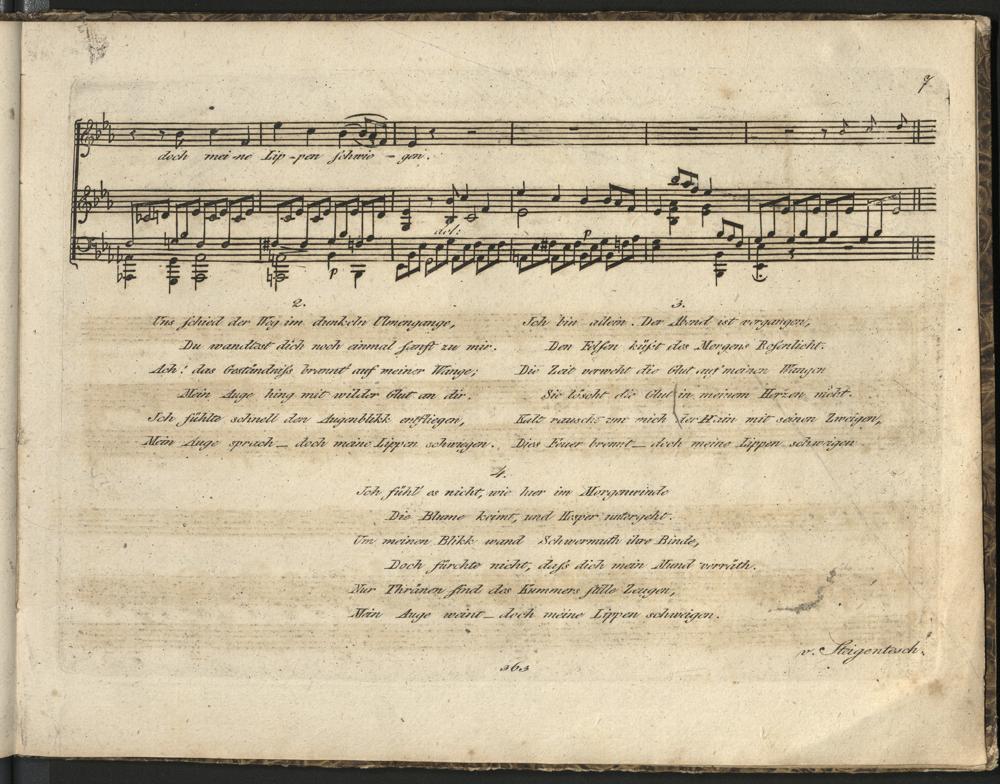 7
doch mei-ne Lip-pen schwie-gen.
dol:
p
p
2.
Uns schied der Weg im dunkeln Ulmengange,
Du wandtest dich noch einmal sanft zu mir.
Ach! das Geständniss brannt' auf meiner Wange;
Mein Auge hing mit wilder Glut an dir.
Ich fühlte schnell den Augenblikk entfliegen,
Mein Auge sprach _ doch meine Lippen schwiegen.
3.
Ich bin allein. Der Abend ist vergangen,
Den Felsen küsst des Morgens Rosenlicht.
Die Zeit verweht die Glut auf meinen Wangen
Sie löscht die Glut in meinem Herzen nicht.
Kalt rauscht um mich der Hain mit seinen Zweigen,
Dies Feuer brennt _ doch meine Lippen schweigen
4.
Ich fühl' es nicht, wie hier im Morgenwinde
Die Blume keimt, und Hesper untergeht.
Um meinen Blikk wand Schwermuth ihre Binde,
Doch fürchte nicht, dass dich mein Mund verräth.
Nur Thränen sind des Kummers stille Zeugen,
Mein Auge weint _ doch meine Lippen schweigen.
v. Steigentesch.
363